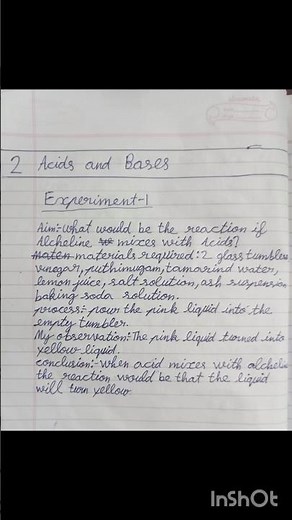 2 Acids and Bases
Experiment-1
Aim:-What would be the reaction if
Alcheline mixes with Acids?
materials required:-2 glass tumblers
vinegar, puthimugam, tamarind water,
lemon juice, salt solution, ash suspension
baking soda solution.
process:- pour the pink liquid into the
empty tumbler.
My observation:-The pink liquid turned into
yellow liquid.
conclusion:-When acid mixes with alcheline
the reaction would be that the liquid
will turn yellow.
InShOt